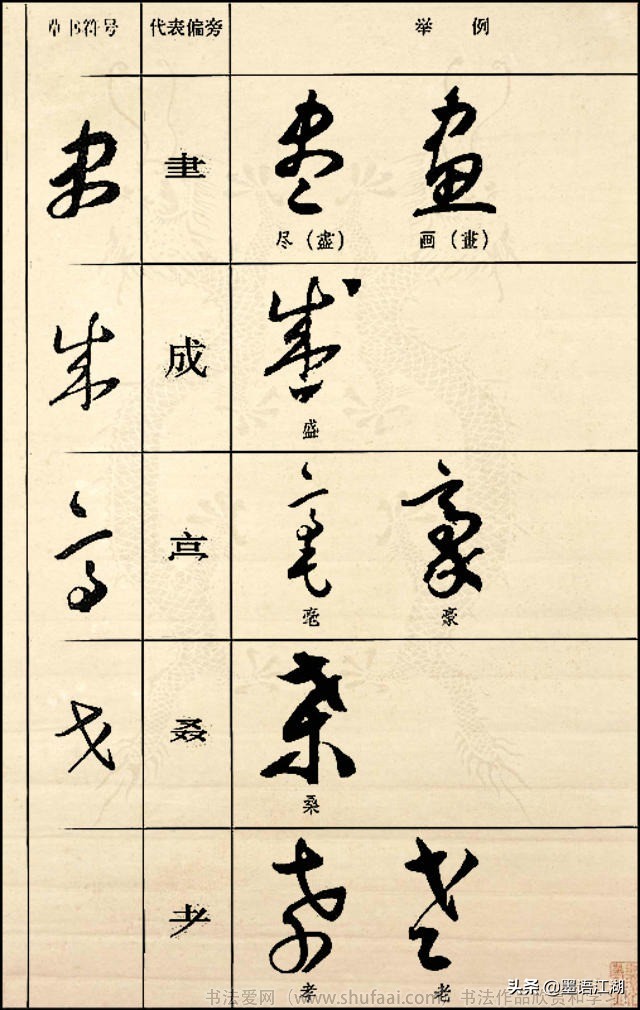 草书符号 代表偏旁 举例
𦘒
尽（盡） 画（畫）
成
盛
亯
毫 豪
叒
桑
耂
孝 老
书法爱网（www.shufaai.com）书法作品欣赏和学习
头条 @墨语江湖